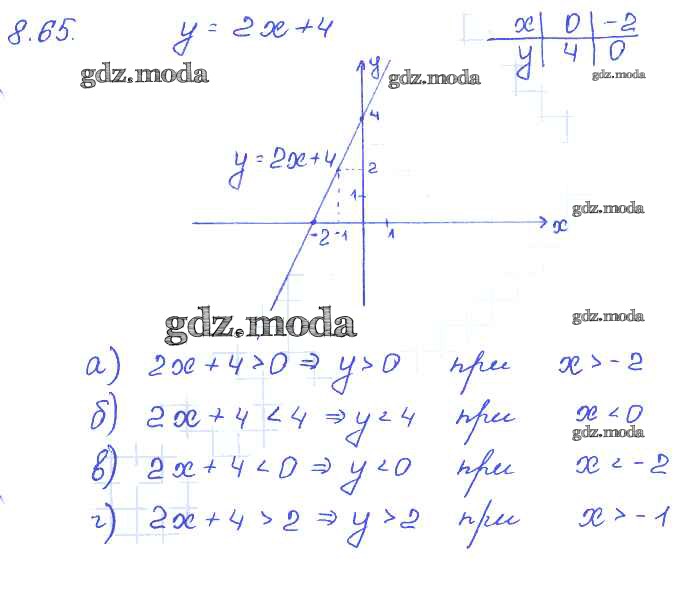 8.65. y = 2x+4
x 0 -2
y 4 0
gdz.moda gdz.moda gdz.moda
y
4
y = 2x+4
2
1
gdz.moda
-2 -1 1 x
gdz.moda gdz.moda
а) 2x+4>0 ⇒ y>0 при x>-2
б) 2x+4<4 ⇒ y<4 при x<0
gdz.moda
в) 2x+4<0 ⇒ y<0 при x<-2
г) 2x+4>2 ⇒ y>2 при x>-1